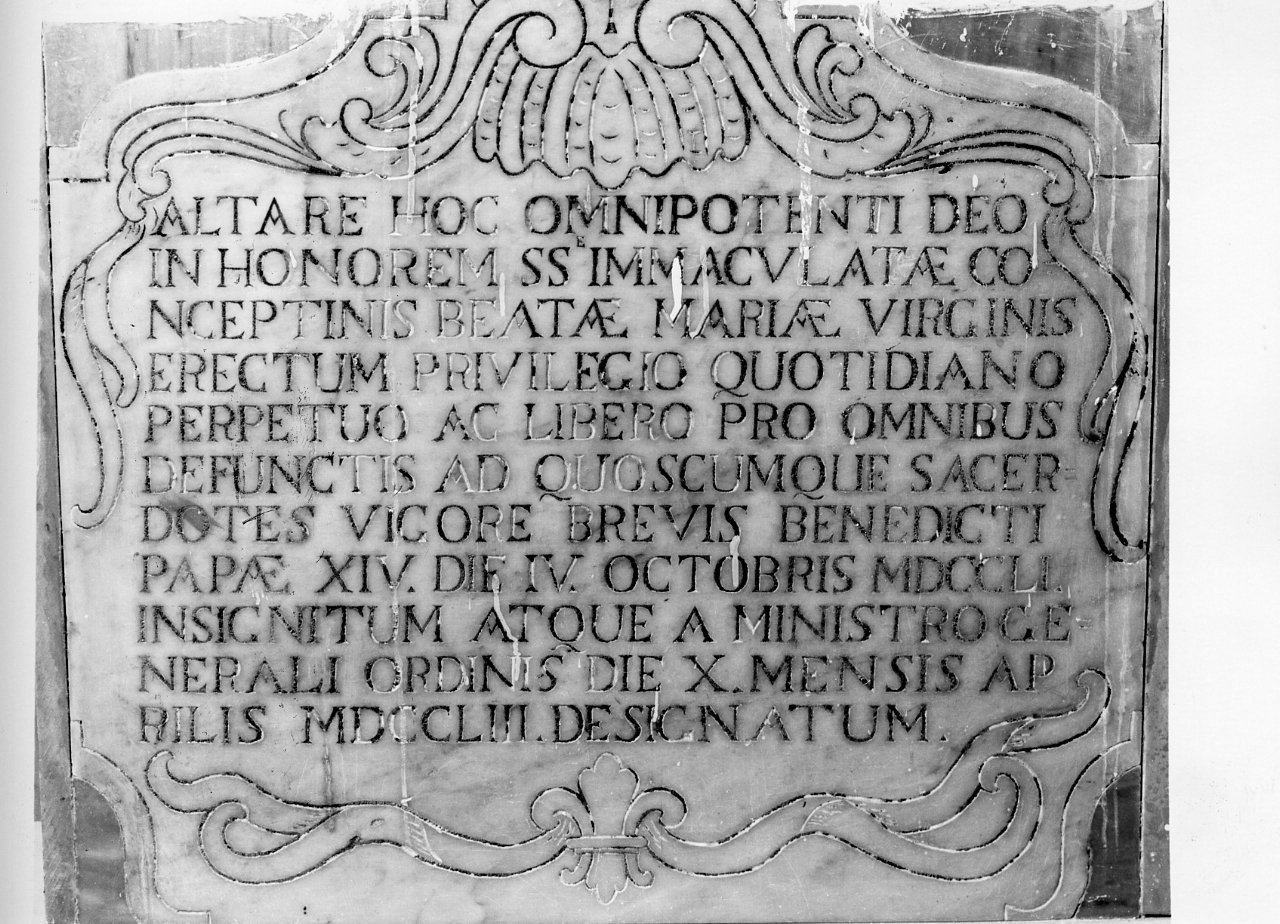 ALTARE HOC OMNIPOTENTI DEO
IN HONOREM SS. IMMACVLATÆ CO
NCEPTINIS BEATÆ MARIÆ VIRGINIS
ERECTUM PRIVILEGIO QUOTIDIANO
PERPETUO AC LIBERO PRO OMNIBUS
DEFUNCTIS AD QUOSCUMQUE SACER=
DOTES VIGORE BREVIS BENEDICTI
PAPÆ XIV. DIE IV. OCTOBRIS MDCCLI.
INSIGNITUM ATQUE A MINISTRO GE=
NERALI ORDINIS DIE X. MENSIS AP
RILIS MDCCLIII. DESIGNATUM.